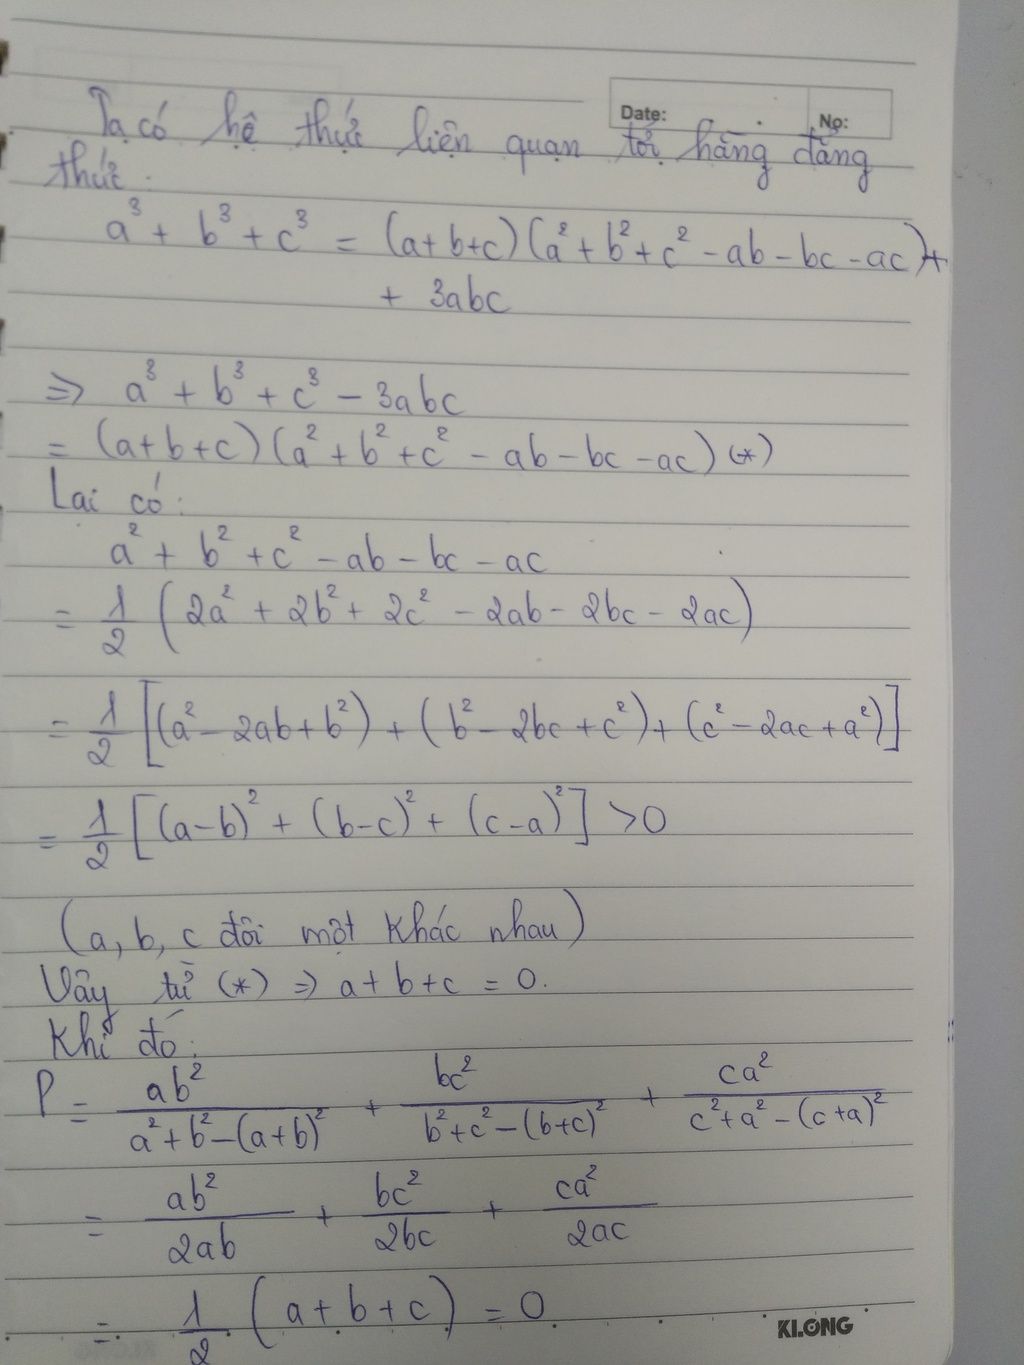 Date: No:
Ta có hệ thức liên quan tới hằng đẳng
thức.
a³ + b³ + c³ = (a+b+c)(a²+b²+c² - ab - bc - ac) +
+ 3abc
=> a³ + b³ + c³ - 3abc
= (a+b+c)(a²+b²+c² - ab - bc - ac) (*)
Lại có:
a² + b² + c² - ab - bc - ac
= 1/2 (2a² + 2b² + 2c² - 2ab - 2bc - 2ac)
= 1/2 [(a² - 2ab + b²) + (b² - 2bc + c²) + (c² - 2ac + a²)]
= 1/2 [(a-b)² + (b-c)² + (c-a)²] > 0
(a, b, c đôi một khác nhau)
Vậy từ (*) => a + b + c = 0.
Khi đó:
P = ab²/(a²+b²-(a+b)²) + bc²/(b²+c²-(b+c)²) + ca²/(c²+a²-(c+a)²)
= ab²/2ab + bc²/2bc + ca²/2ac
= 1/2 (a + b + c) = 0
KLONG